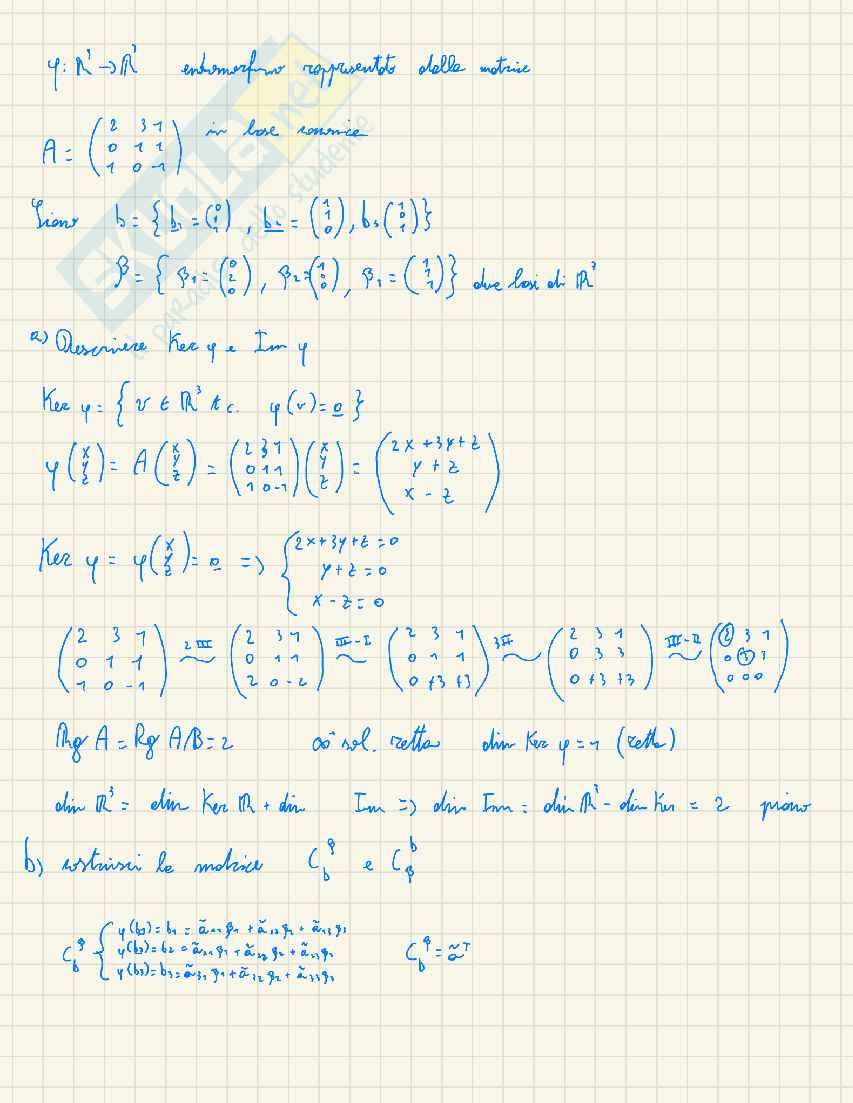 φ: ℝ³ → ℝ³ endomorfismo rappresentato dalla matrice
A = (2 3 1; 0 1 1; 1 0 -1) in base canonica
Siano b = { b₁ = (0 1 1), b₂ = (1 1 0), b₃ (1 0 1) }
β = { β₁ = (0 2 0), β₂ = (1 0 0), β₃ = (1 1 1) } due basi di ℝ³
a) Descrivere Ker φ e Im φ
Ker φ = { v ∈ ℝ³ t.c. φ(v) = 0 }
φ(x y z) = A(x y z) = (2 3 1; 0 1 1; 1 0 -1)(x y z) = (2x+3y+z; y+z; x-z)
Ker φ = φ(x y z) = 0 => { 2x+3y+z=0
y+z=0
x-z=0
(2 3 1; 0 1 1; 1 0 -1) ~ 2III (2 3 1; 0 1 1; 2 0 -2) ~ III-I (2 3 1; 0 1 1; 0 +3 +3) ~ 3II (2 3 1; 0 3 3; 0 +3 +3) ~ III-II (2 3 1; 0 3 3; 0 0 0)
Rg A = Rg A/B = 2 ∞ sol. retta dim Ker φ = 1 (retta)
dim ℝ³ = dim Ker ℝ + dim Im => dim Im = dim ℝ³ - dim Ker = 2 piano
b) costruisci la matrice C_b^β e C_β^b
C_b^β { φ(b₃) = b₁ = ã₁₁β₁ + ã₁₂β₂ + ã₁₃β₃
φ(b₃) = b₂ = ã₂₁β₁ + ã₂₂β₂ + ã₂₃β₃
φ(b₃) = b₃ = ã₃₁β₁ + ã₃₂β₂ + ã₃₃β₃
C_b^β = ãᵀ
SKUOLA.net
il paradiso dello studente